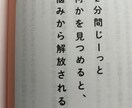 2分間じーっと
何かを見つめると、
悩みから解放される